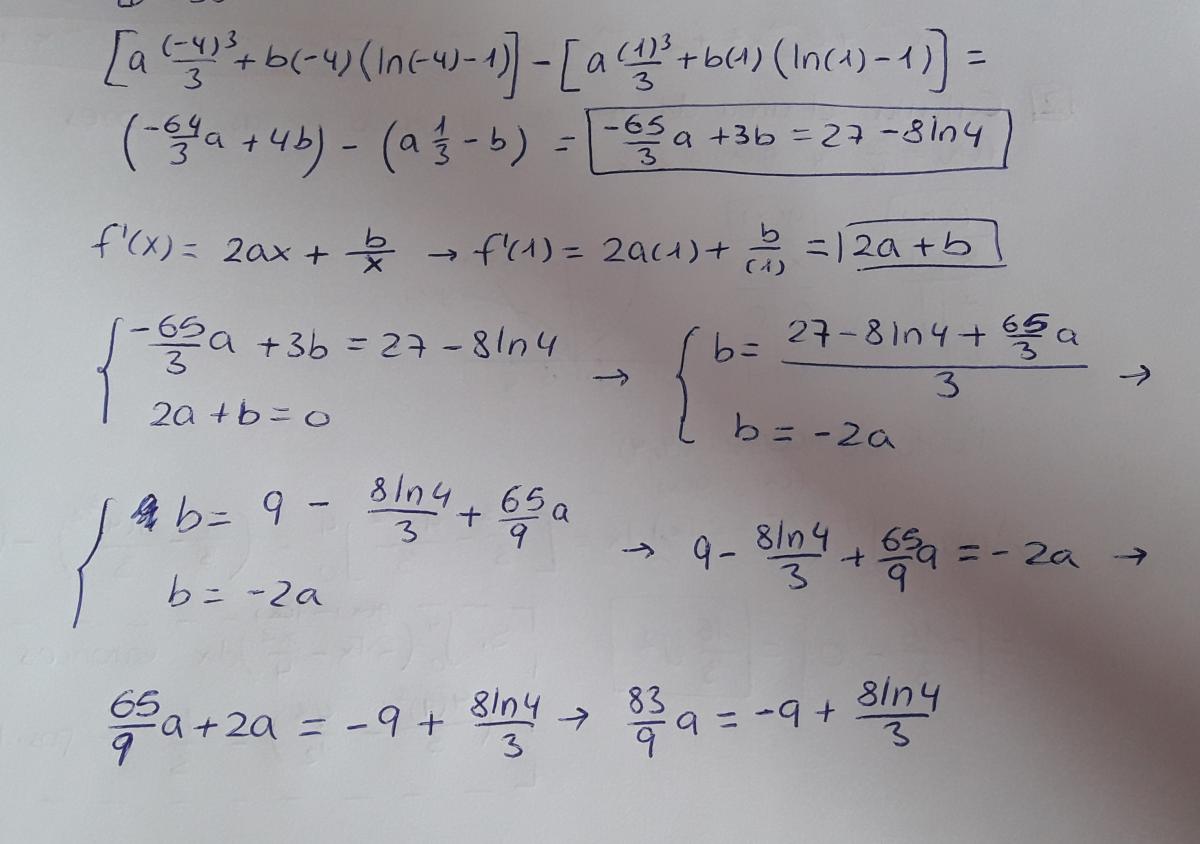 [a (-4)³/3 + b(-4)(ln(-4)-1)] - [a (1)³/3 + b(1)(ln(1)-1)] =
(-64/3 a + 4b) - (a 1/3 - b) = -65/3 a + 3b = 27 - 8ln4
f'(x) = 2ax + b/x → f'(1) = 2a(1) + b/(1) = 2a + b
{ -65/3 a + 3b = 27 - 8ln4 → { b = (27 - 8ln4 + 65/3 a)/3 →
2a + b = 0 b = -2a
{ b = 9 - 8ln4/3 + 65/9 a → 9 - 8ln4/3 + 65/9 a = -2a →
b = -2a
65/9 a + 2a = -9 + 8ln4/3 → 83/9 a = -9 + 8ln4/3